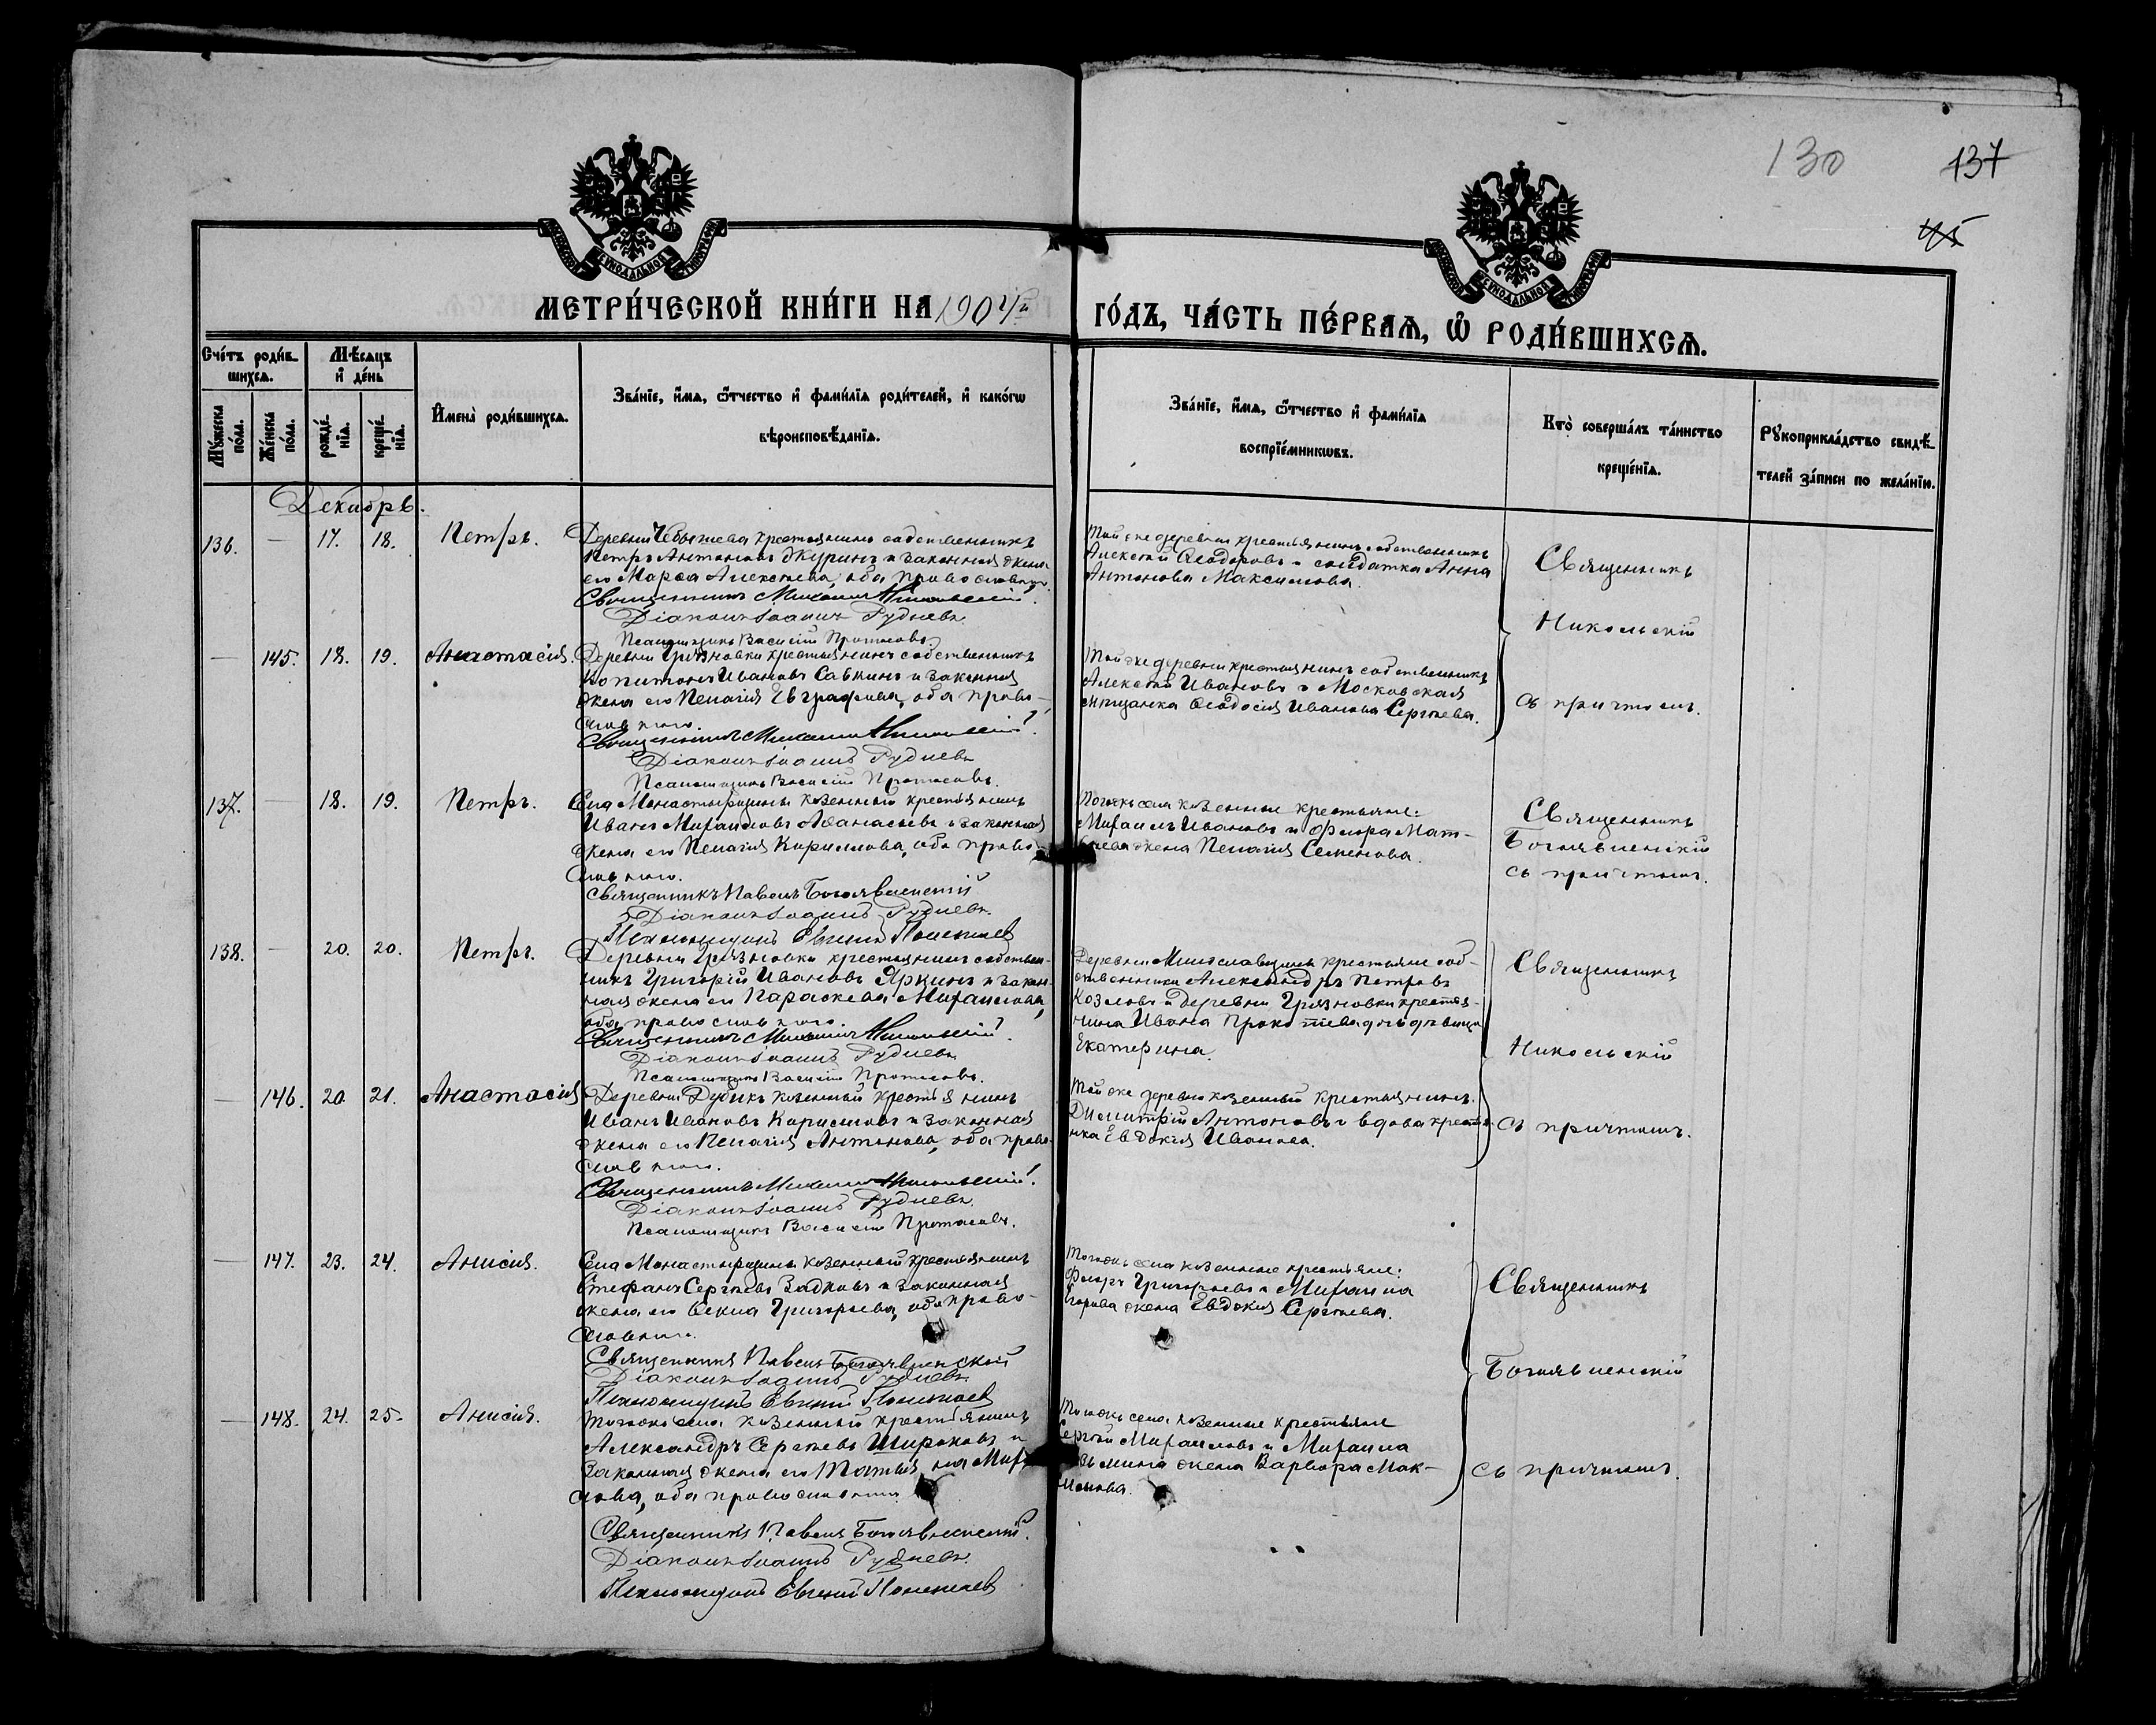 130
137
МЕТРИ́ЧЕСКОЙ КНИ́ГИ НА 1904й ГО́ДЪ, ЧА́СТЬ ПЕ́РВАѦ, Ѿ РОДИ́ВШИХСѦ.
Сче́тъ роди́в-
шихсѧ.
Мѣ́сѧцъ
и҆ де́нь
Мꙋ́жеска
по́ла.
Же́нска
по́ла.
рожде́-
нїѧ.
креще́-
нїѧ.
И҆мена̀ роди́вшихсѧ.
Зва́нїе, и҆́мѧ, ѻ҆́тчество и҆ фами́лїѧ роди́телей, и҆ како́гѡ
вѣроисповѣ́данїѧ.
Зва́нїе, и҆́мѧ, ѻ҆́тчество и҆ фами́лїѧ
воспрїе́мникѡвъ.
Кто̀ соверша́лъ та́инство
креще́нїѧ.
Рꙋкоприкла́дство свидѣ́-
телей за́писи по жела́нїю.
Декабрь.
136. — 17. 18. Петръ.
крестьянинъ собственникъ
Петръ Антоновъ Журинъ и законная жена
его Марѳа Алексѣева, оба православные.
Священникъ Михаилъ Никольскій.
Діаконъ Іоаннъ Рудневъ.
Псаломщикъ Василій Протасовъ
Той же деревни крестьянинъ собственникъ
Алексѣй Ѳеодоровъ и солдатка Анна
Антонова Максимова.
Священникъ
Никольскій
съ причтомъ.
— 145. 18. 19. Анастасія.
Деревни Грязновки крестьянинъ собственникъ
Капитонъ Ивановъ Савкинъ и законная
жена его Пелагія Евграфова, оба право-
славные.
Священникъ Михаилъ Никольскій.
Діаконъ Іоаннъ Рудневъ
Псаломщикъ Василій Протасовъ.
Той же деревни крестьянинъ собственникъ
Алексѣй Ивановъ и Московская
мѣщанка Ѳеодосія Иванова Сергѣева.
137. — 18. 19. Петръ.
Села Монастырщины казенный крестьянинъ
Иванъ Михаиловъ Аѳанасьевъ и законная
жена его Пелагія Кириллова, оба право-
славные.
Священникъ Павелъ Богоявленскій
Діаконъ Іоаннъ Рудневъ.
Псаломщикъ Евгеній
Тогожь села казенные крестьяне:
Михаилъ Ивановъ и Флора Мат-
вѣева жена Пелагія Семенова.
Священникъ
Богоявленскій
съ причтомъ.
138. — 20. 20. Петръ.
Деревни Грязновки крестьянинъ собствен-
никъ Григорій Ивановъ Яркинъ и закон-
ная жена его Параскева Михаилова,
оба православные.
Священникъ Михаилъ Никольскій.
Діаконъ Іоаннъ Рудневъ
Псаломщикъ Василій Протасовъ.
Деревни Милославщины крестьяне соб-
ственники Александръ Петровъ
Козловъ и деревни Грязновки крестья-
нина Ивана Прокопіева дочь дѣвица
Екатерина.
Священникъ
Никольскій
съ причтомъ.
— 146. 20. 21. Анастасія
Деревни Дубики казенный крестьянинъ
Иванъ Ивановъ Кирилловъ и законная
жена его Пелагія Антонова, оба право-
славные.
Священникъ Михаилъ Никольскій.
Діаконъ Іоаннъ Рудневъ.
Псаломщикъ Василій Протасовъ.
Той же деревни казенный крестьянинъ
Димитрій Антоновъ и вдова крестья-
нка Евдокія Иванова.
— 147. 23. 24. Анисія.
Села Монастырщины казенный крестьянинъ
Стефанъ Сергѣевъ Задковъ и законная
жена его Ѳекла Григорьева, оба право-
славные.
Священникъ Павелъ Богоявленскій
Діаконъ Іоаннъ Рудневъ
Псаломщикъ Евгеній
Тогожь села казенные крестьяне:
Флоръ Григорьевъ и Михаила
Егорова жена Евдокія Сергѣева.
Священникъ
Богоявленскій
съ причтомъ.
— 148. 24. 25. Анисія.
Тогожь села казенный крестьянинъ
Александръ Сергѣевъ Широковъ и
законная жена его Татьяна Михаи-
лова, оба православные.
Священникъ Павелъ Богоявленскій.
Діаконъ Іоаннъ Рудневъ.
Псаломщикъ Евгеній
Тогожь села казенные крестьяне
Сергѣй Михаиловъ и Михаила
Козьмина жена Варвара Мак-
симова.